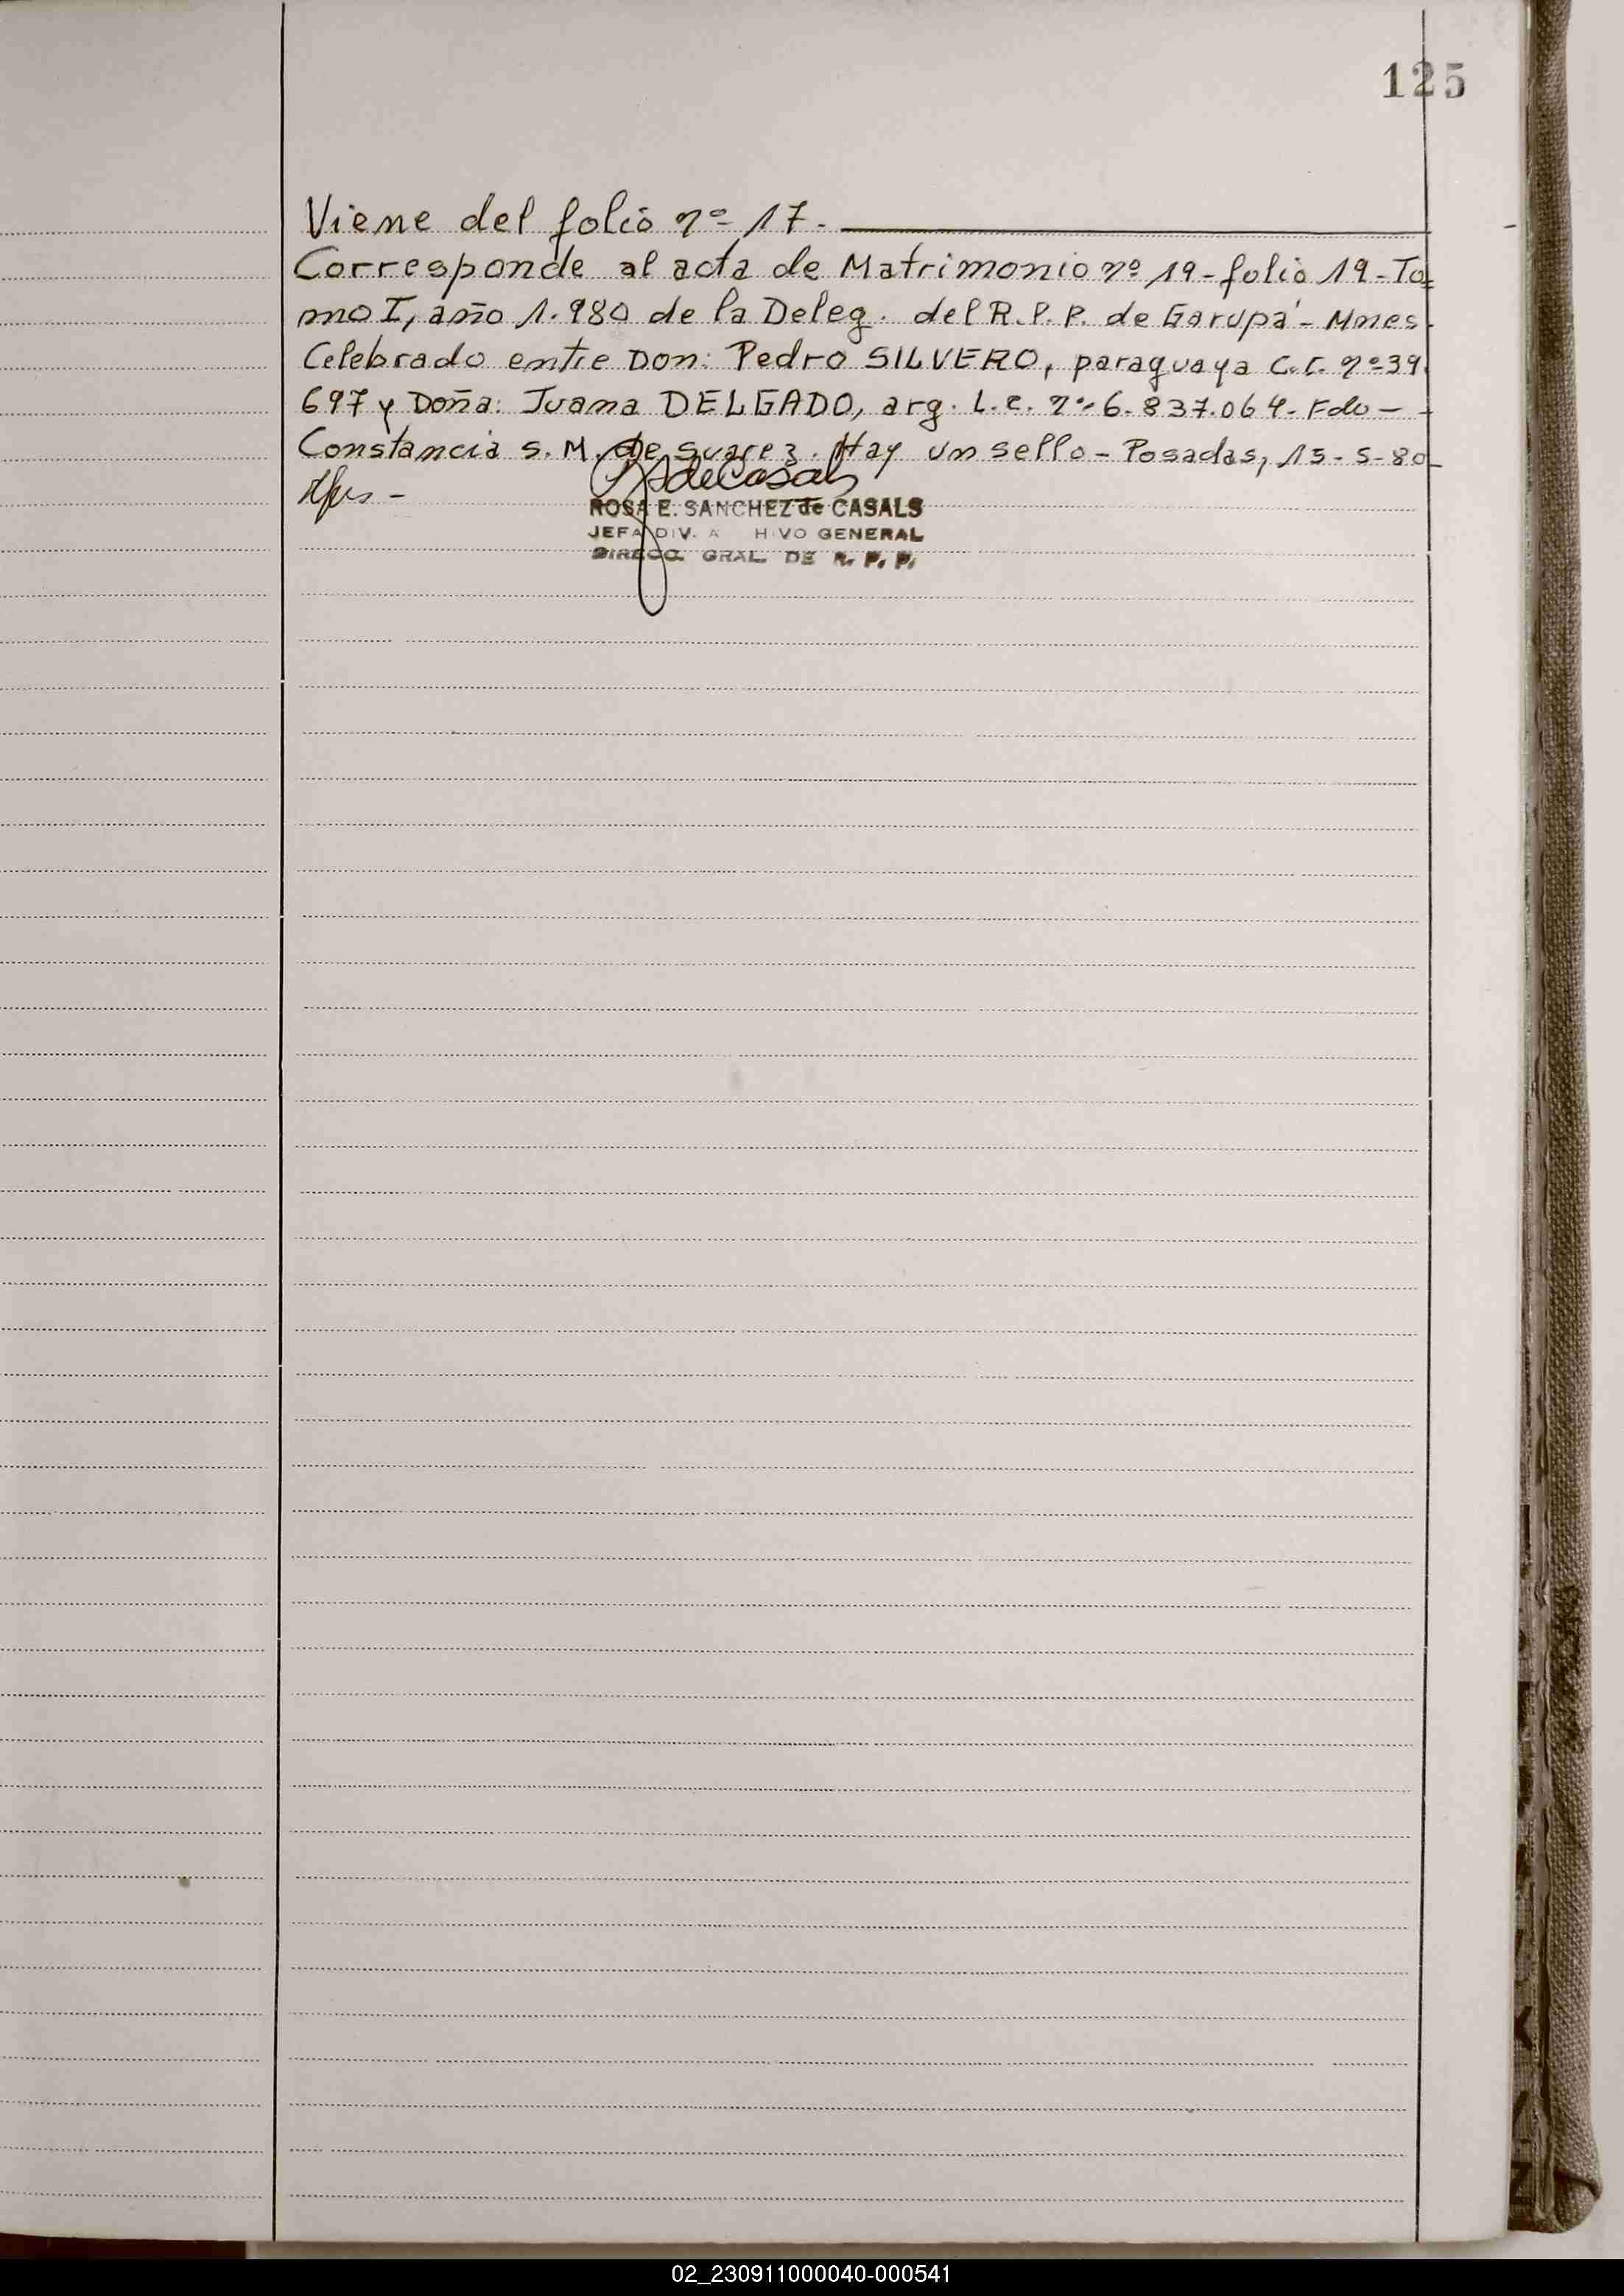 125
Viene del folio nº 17.
Corresponde al acta de Matrimonio nº 19-folio 19-To=
mo I, año 1.980 de la Deleg. del R.P.P. de Garupá-Mnes.
Celebrado entre Don: Pedro SILVERO, paraguaya C.C. nº 39.
697 y Doña: Juana DELGADO, arg. L.C. nº 6.837.064-Fdo-
Constancia S. M. de Suarez. Hay un sello-Posadas, 15-5-80-
ROSA E. SANCHEZ de CASALS
JEFA DIV. A HIVO GENERAL
DIRECC. GRAL. DE R. P. P.
02_230911000040-000541